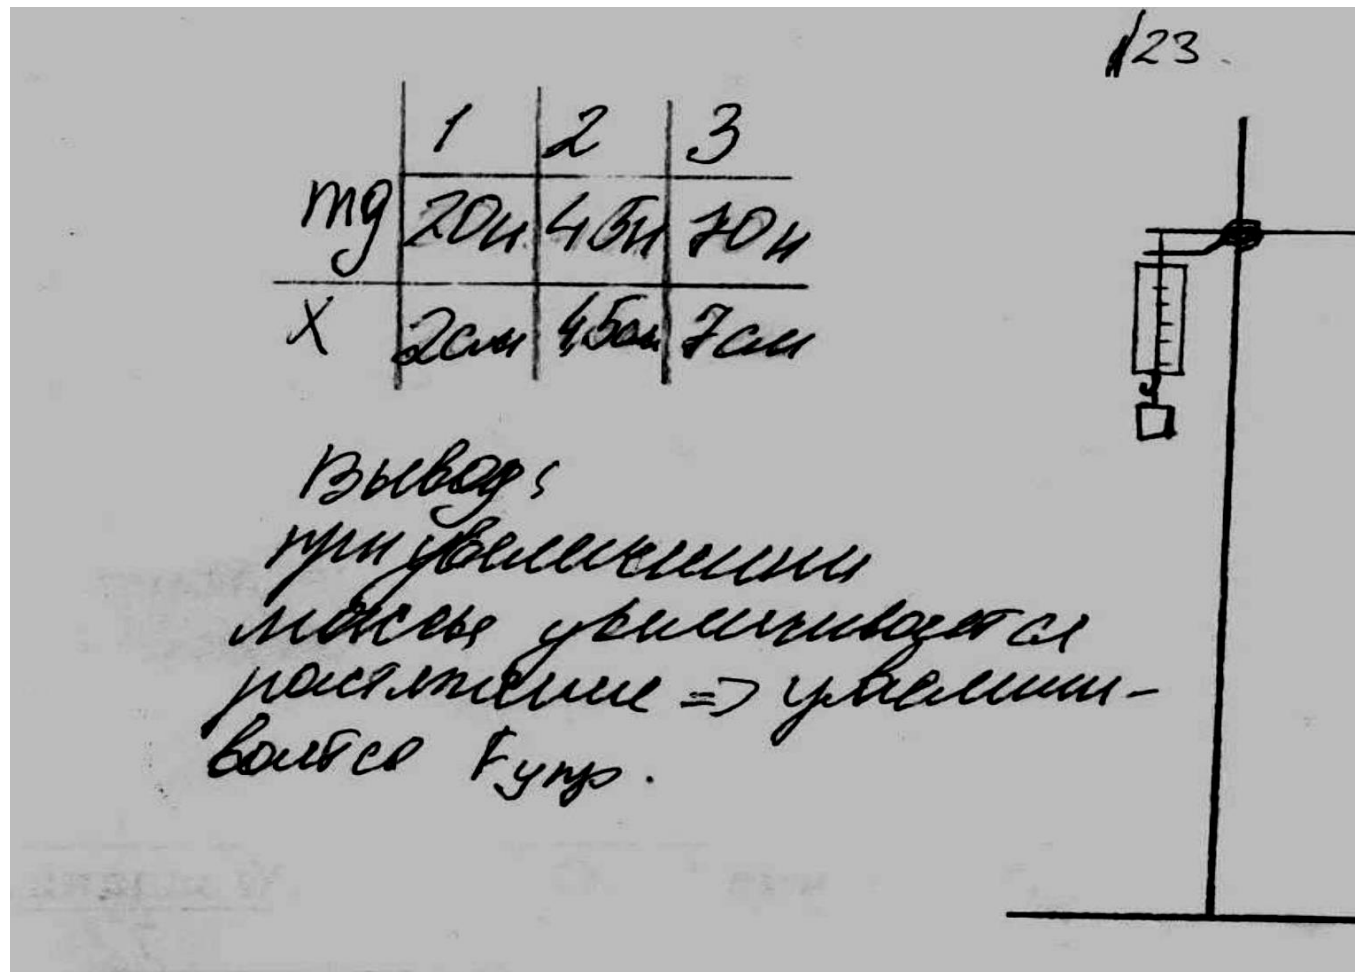 №23
1 2 3
mg 20н 45н 70н
x 2см 4,5см 7см
Вывод:
при увеличении
массы увеличивается
растяжение => увеличи-
вается Fупр.